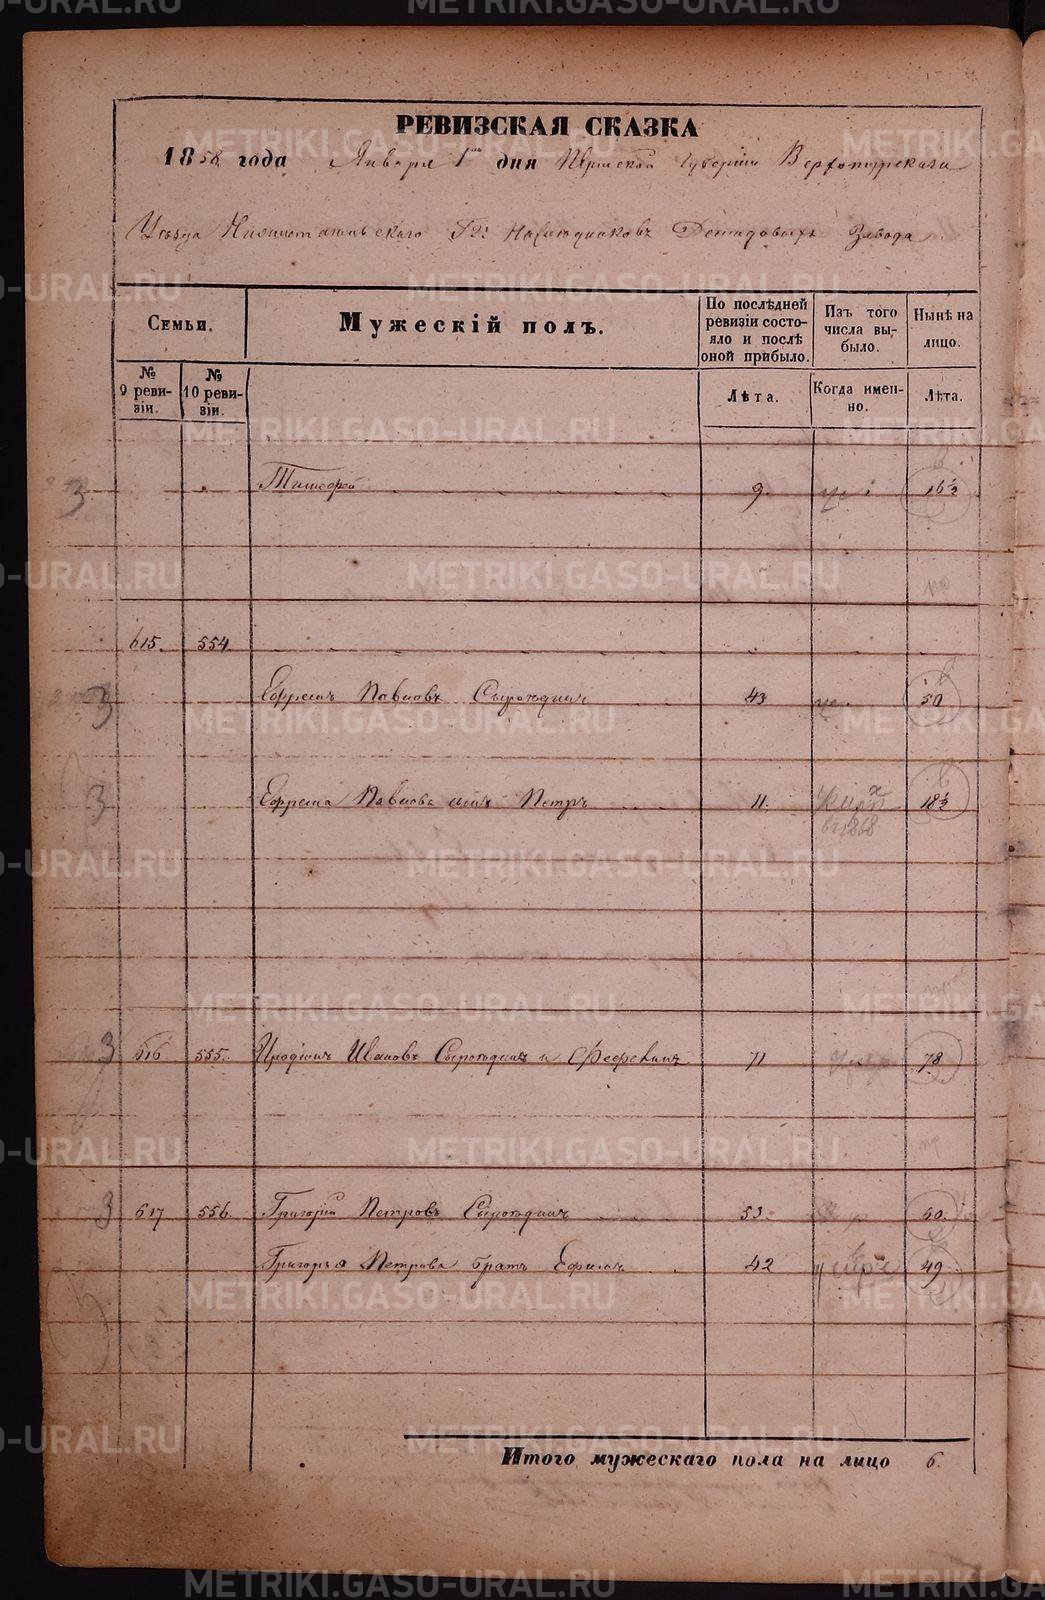 РЕВИЗСКАЯ СКАЗКА
1858 года Января 1го дня Пермской Губерніи Верхотурскаго
Уѣзда Нижнетагильскаго Гд: Наслѣдниковъ Демидовыхъ Завода
Семьи.
Мужескій полъ.
По послѣдней ревизіи состояло и послѣ оной прибыло.
Изъ того числа выбыло.
Нынѣ на лицо.
№ 9 ревизіи.
№ 10 ревизіи.
Лѣта.
Когда именно.
Лѣта.
3 Тимофей 9 16½
615. 554.
3 Ефремъ Павловъ Сыроѣдинъ 43 50
3 Ефрема Павлова сынъ Петръ 11. 18½
1868
3 616 555. Иродіонъ Ивановъ Сыроѣдинъ и 71 78
3 617 556. Григорій Петровъ Сыроѣдинъ 53. 60.
Григорья Петрова братъ Ефимъ 42 49
Итого мужескаго пола на лицо 6.
METRIKI.GASO-URAL.RU